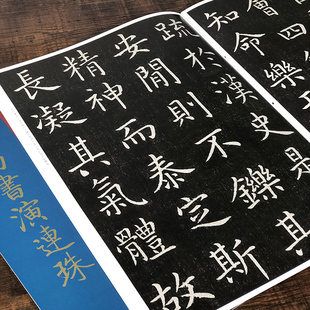 會四
知命樂
疏於漢史是
安閒則不鑠其
精神而泰定斯
長凝其氣體故
書演連珠